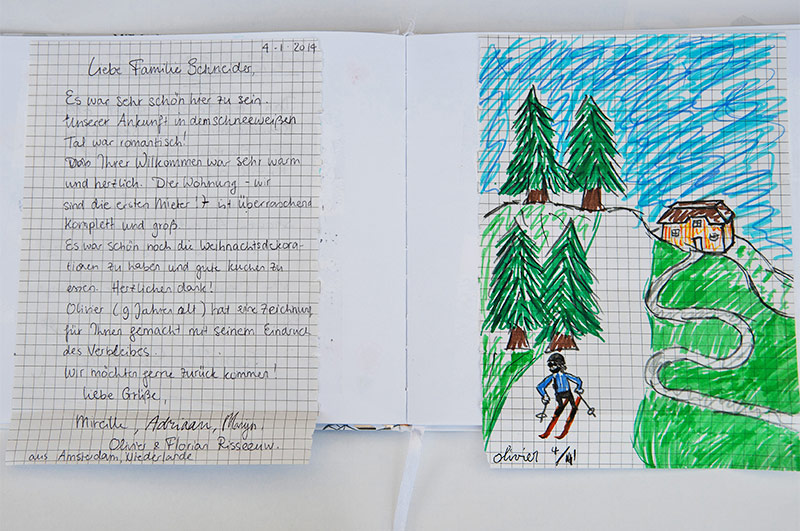 4-1 2014
Liebe Familie Schneider,
Es war sehr schön hier zu sein.
Unserer Ankunft in dem schneeweißen
Tal war romantisch!
Ihrer Willkommen war sehr warm
und herzlich. Die Wohnung - wir
sind die ersten Mieter! - ist überraschend
komplett und groß.
Es war schön noch die Weihnachtsdekora-
tionen zu haben und gute kuchen zu
essen. Herzlichen dank!
Olivier (9 Jahren alt) hat eine Zeichnung
für Ihnen gemacht mit seinem Eindruck
des Verbleibes.
Wir möchten gerne zurück kommen!
Liebe Grüße,
Mireille, Adriaan,
Olivier & Florian
aus Amsterdam, Niederlande
olivier 4/1